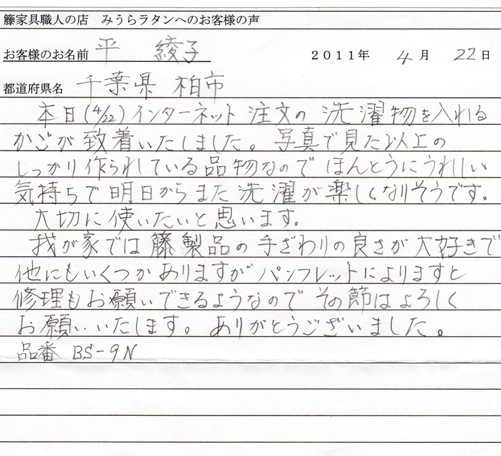 籐家具職人の店　みうらラタンへのお客様の声
お客様のお名前　平　綾子　2011年　4月　22日
都道府県名　千葉県　柏市
本日(4/22)インターネット注文の洗濯物を入れる
かごが致着いたしました。写真で見た以上の
しっかり作られている品物なのでほんとうにうれしい
気持ちで明日からまた洗濯が楽しくなりそうです。
大切に使いたいと思います。
我が家では籐製品の手ざわりの良さが大好きで
他にもいくつかありますがパンフレットによりますと
修理もお願いできるようなのでその節はよろしく
お願いいたします。ありがとうございました。
品番 BS-9N